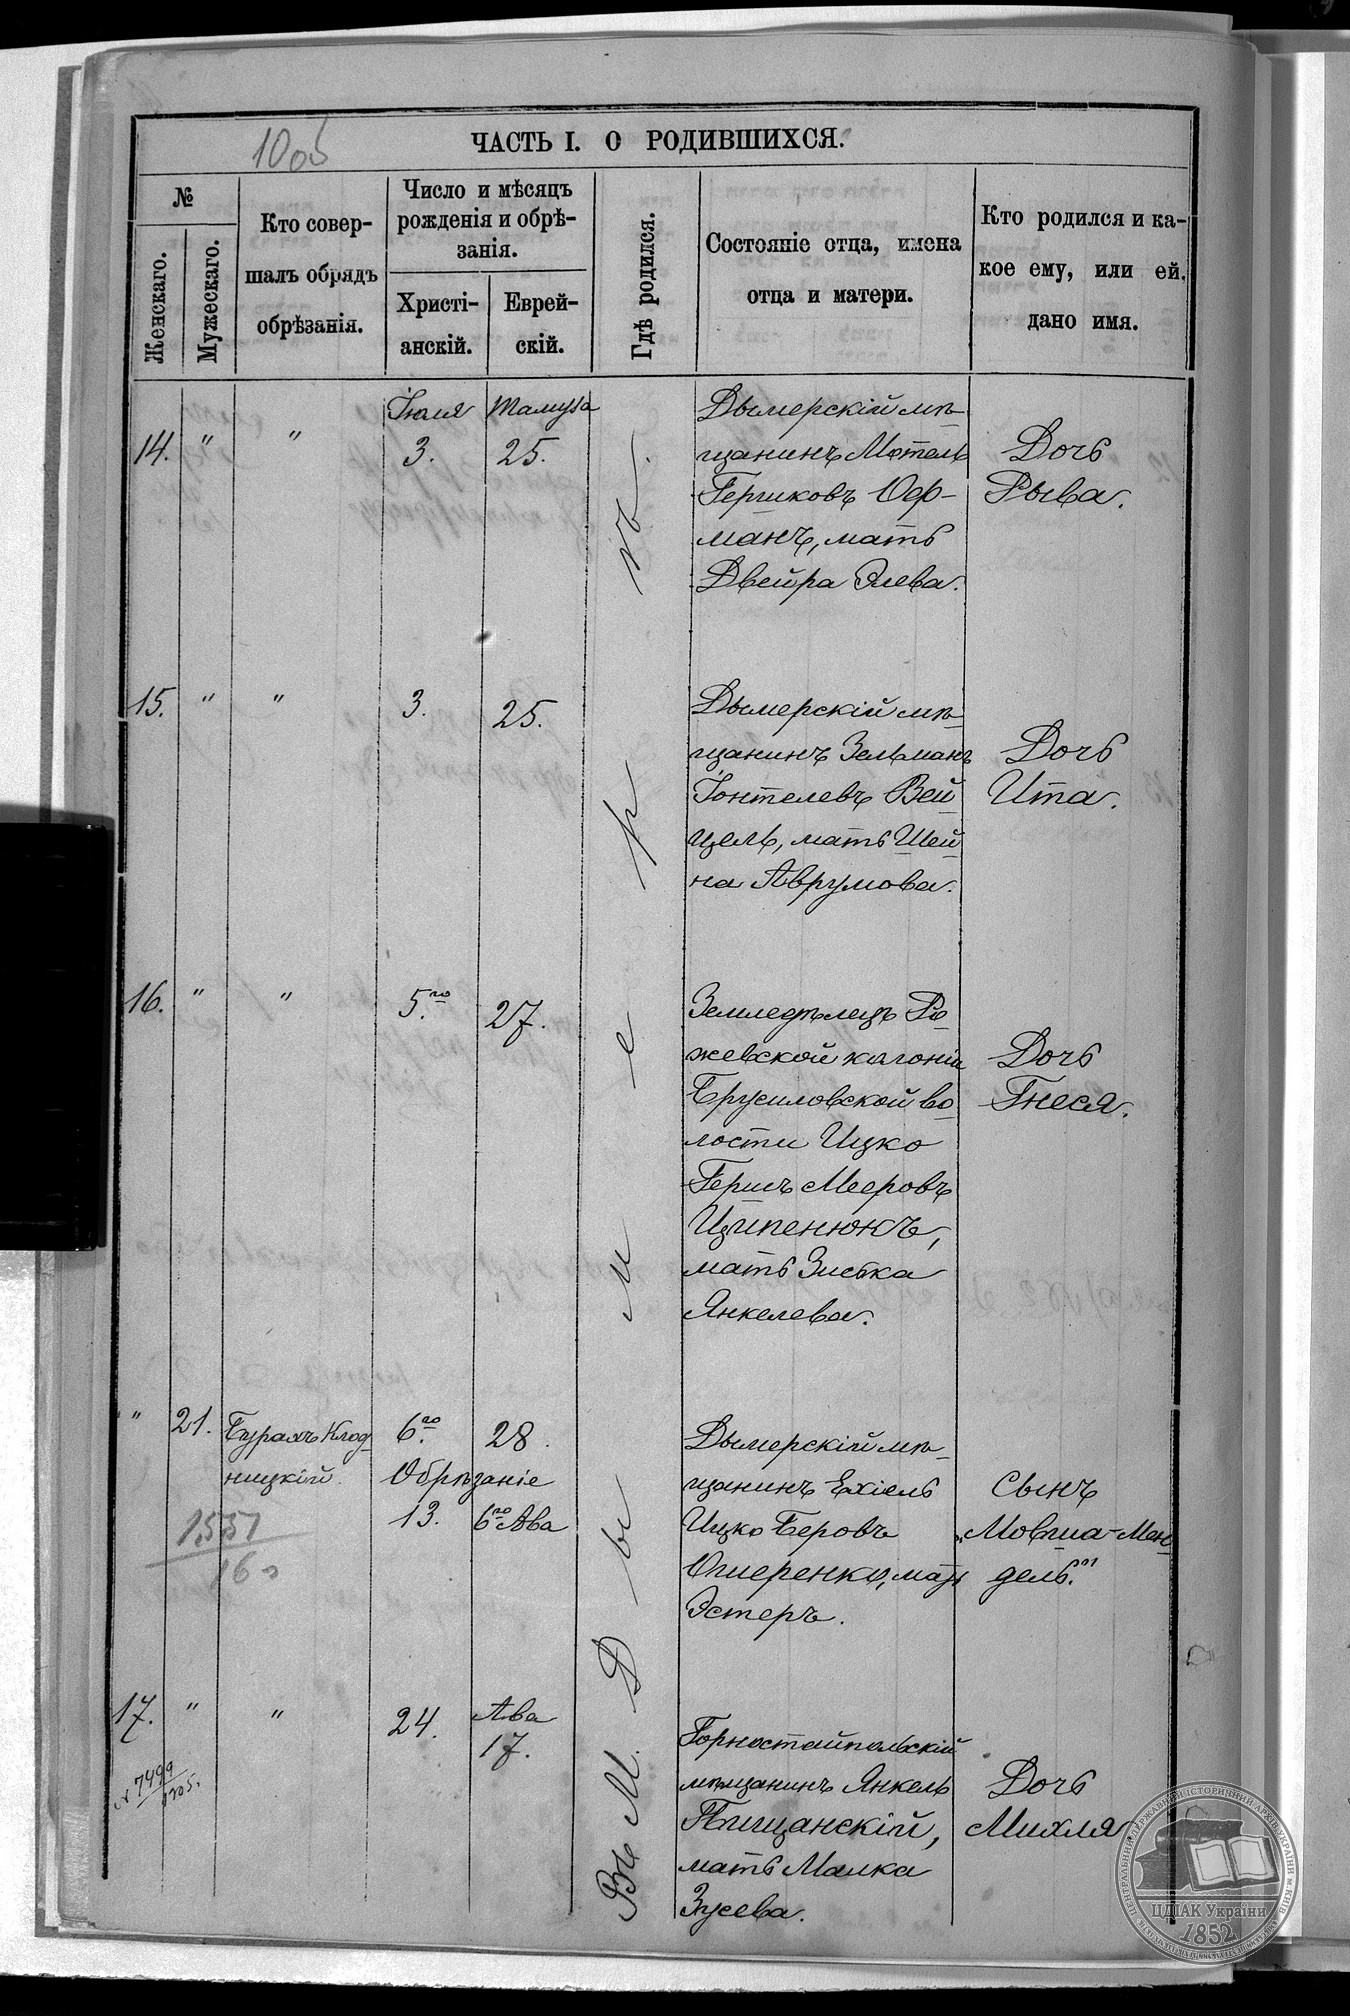 10 об
ЧАСТЬ I. О РОДИВШИХСЯ.
№
Женскаго.
Мужескаго.
Кто совер-
шалъ обрядъ
обрѣзанія.
Число и мѣсяцъ
рожденія и обрѣ-
занія.
Христі-
анскій.
Еврей-
скій.
Гдѣ родился.
Состояніе отца, имена
отца и матери.
Кто родился и ка-
кое ему, или ей.
дано имя.
Въ М. Дымерѣ.
14. " "
Іюля
3.
Тамуза
25.
Дымерскій мѣ-
щанинъ Мотель
Гершковъ Фер-
манъ, мать
Двейра Элева.
Дочь
Рыва.
15. " " 3. 25.
Дымерскій мѣ-
щанинъ Зельманъ
Іонтелевъ Вей
цель, мать Шей
на Аврумова.
Дочь
Ита.
16. " " 5.го 27.
Земледѣлецъ Ро-
жевской колоніи
Брусиловской во-
лости Ицко
Гершъ Мееровъ
Ципенюкъ,
мать Зиська
Янкелева.
Дочь
Гнеся.
" 21.
Бурахъ Клод-
ницкій.
6.го 28.
Обрѣзаніе
13. 6го Ава
Дымерскій мѣ-
щанинъ Ехіель
Ицко Беровъ
Ошеренко, мать
Эстеръ.
Сынъ
„Мовша-Мен-
дель."
1551
17. " " 24.
Ава
17.
Горностайпольскій
мѣщанинъ Янкель
Пищанскій,
мать Малка
Зусева.
Дочь
Михля.
№ 7499
1905.
ЦЕНТРАЛЬНИЙ ДЕРЖАВНИЙ ІСТОРИЧНИЙ АРХІВ УКРАЇНИ М. КИЇВ
ЦДІАК України
1852